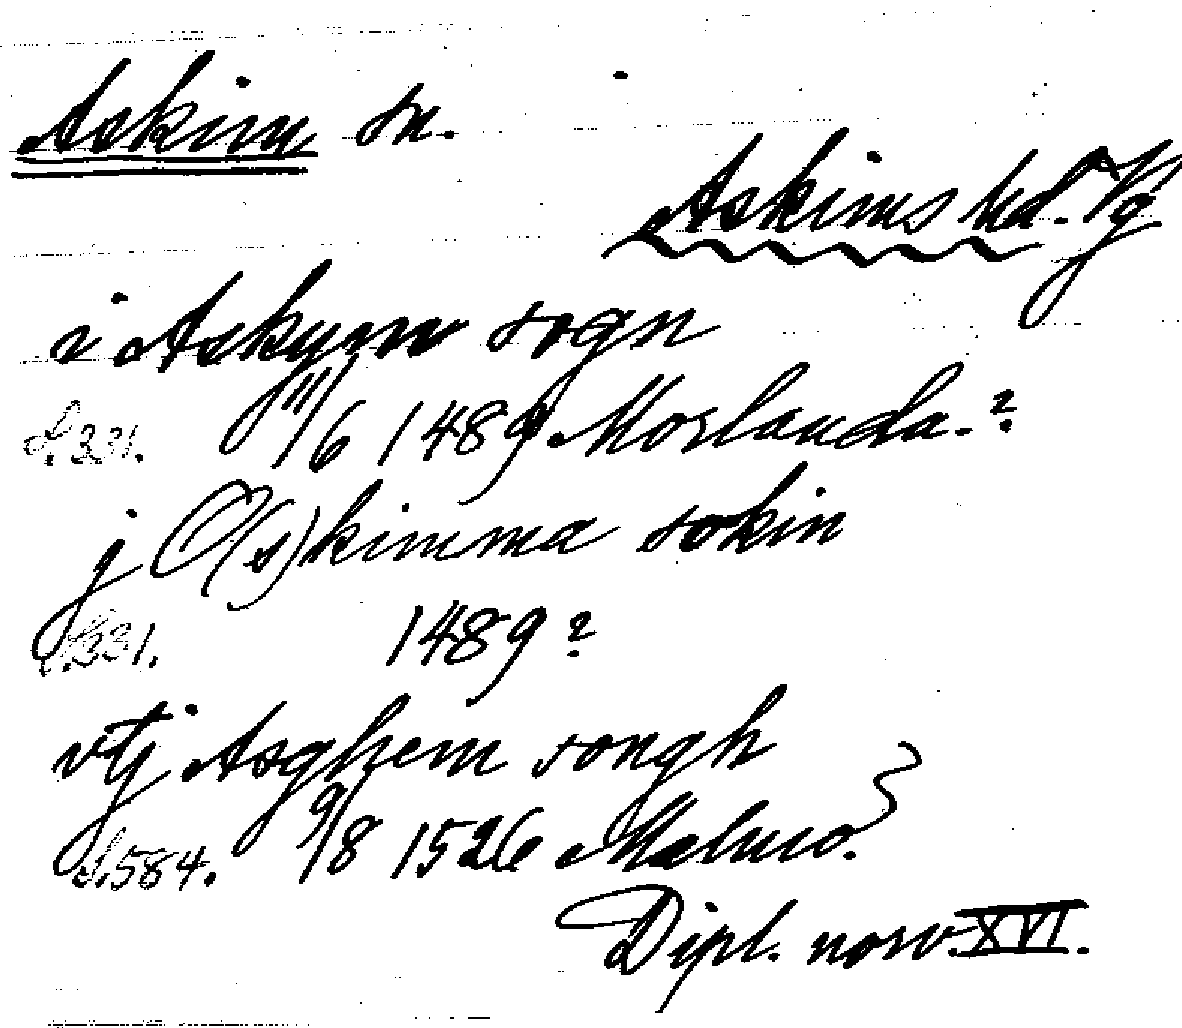 Askim sn.
Askims hd. Vg
i Askym sogn
S. 331. 11/6 1489 Morlanda.?
j O(s)kimma sokin
S. 331. 1489?
vtj Asghem songh
S. 584. 9/8 1526 Malmo.
Dipl. norv. XVI.